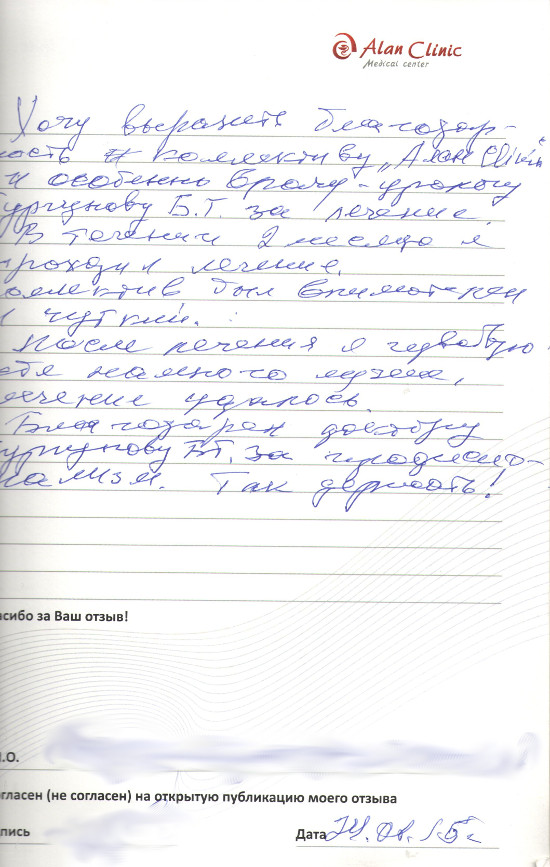 Alan Clinic
Medical center
Хочу выразить благодар-
ность и коллективу „Алан Clinic"
и особенно врачу-урологу
Б.Т. за лечение.
В течении 2 месяца я
проходил лечение.
оллектив был внимателен
и чуткий.
После лечения я чувствую
себя намного лучше,
лечение удалось.
Благодарен доктору
Б.Т. за
нализм. Так держать!
асибо за Ваш отзыв!
.О.
огласен (не согласен) на открытую публикацию моего отзыва
пись
Дата